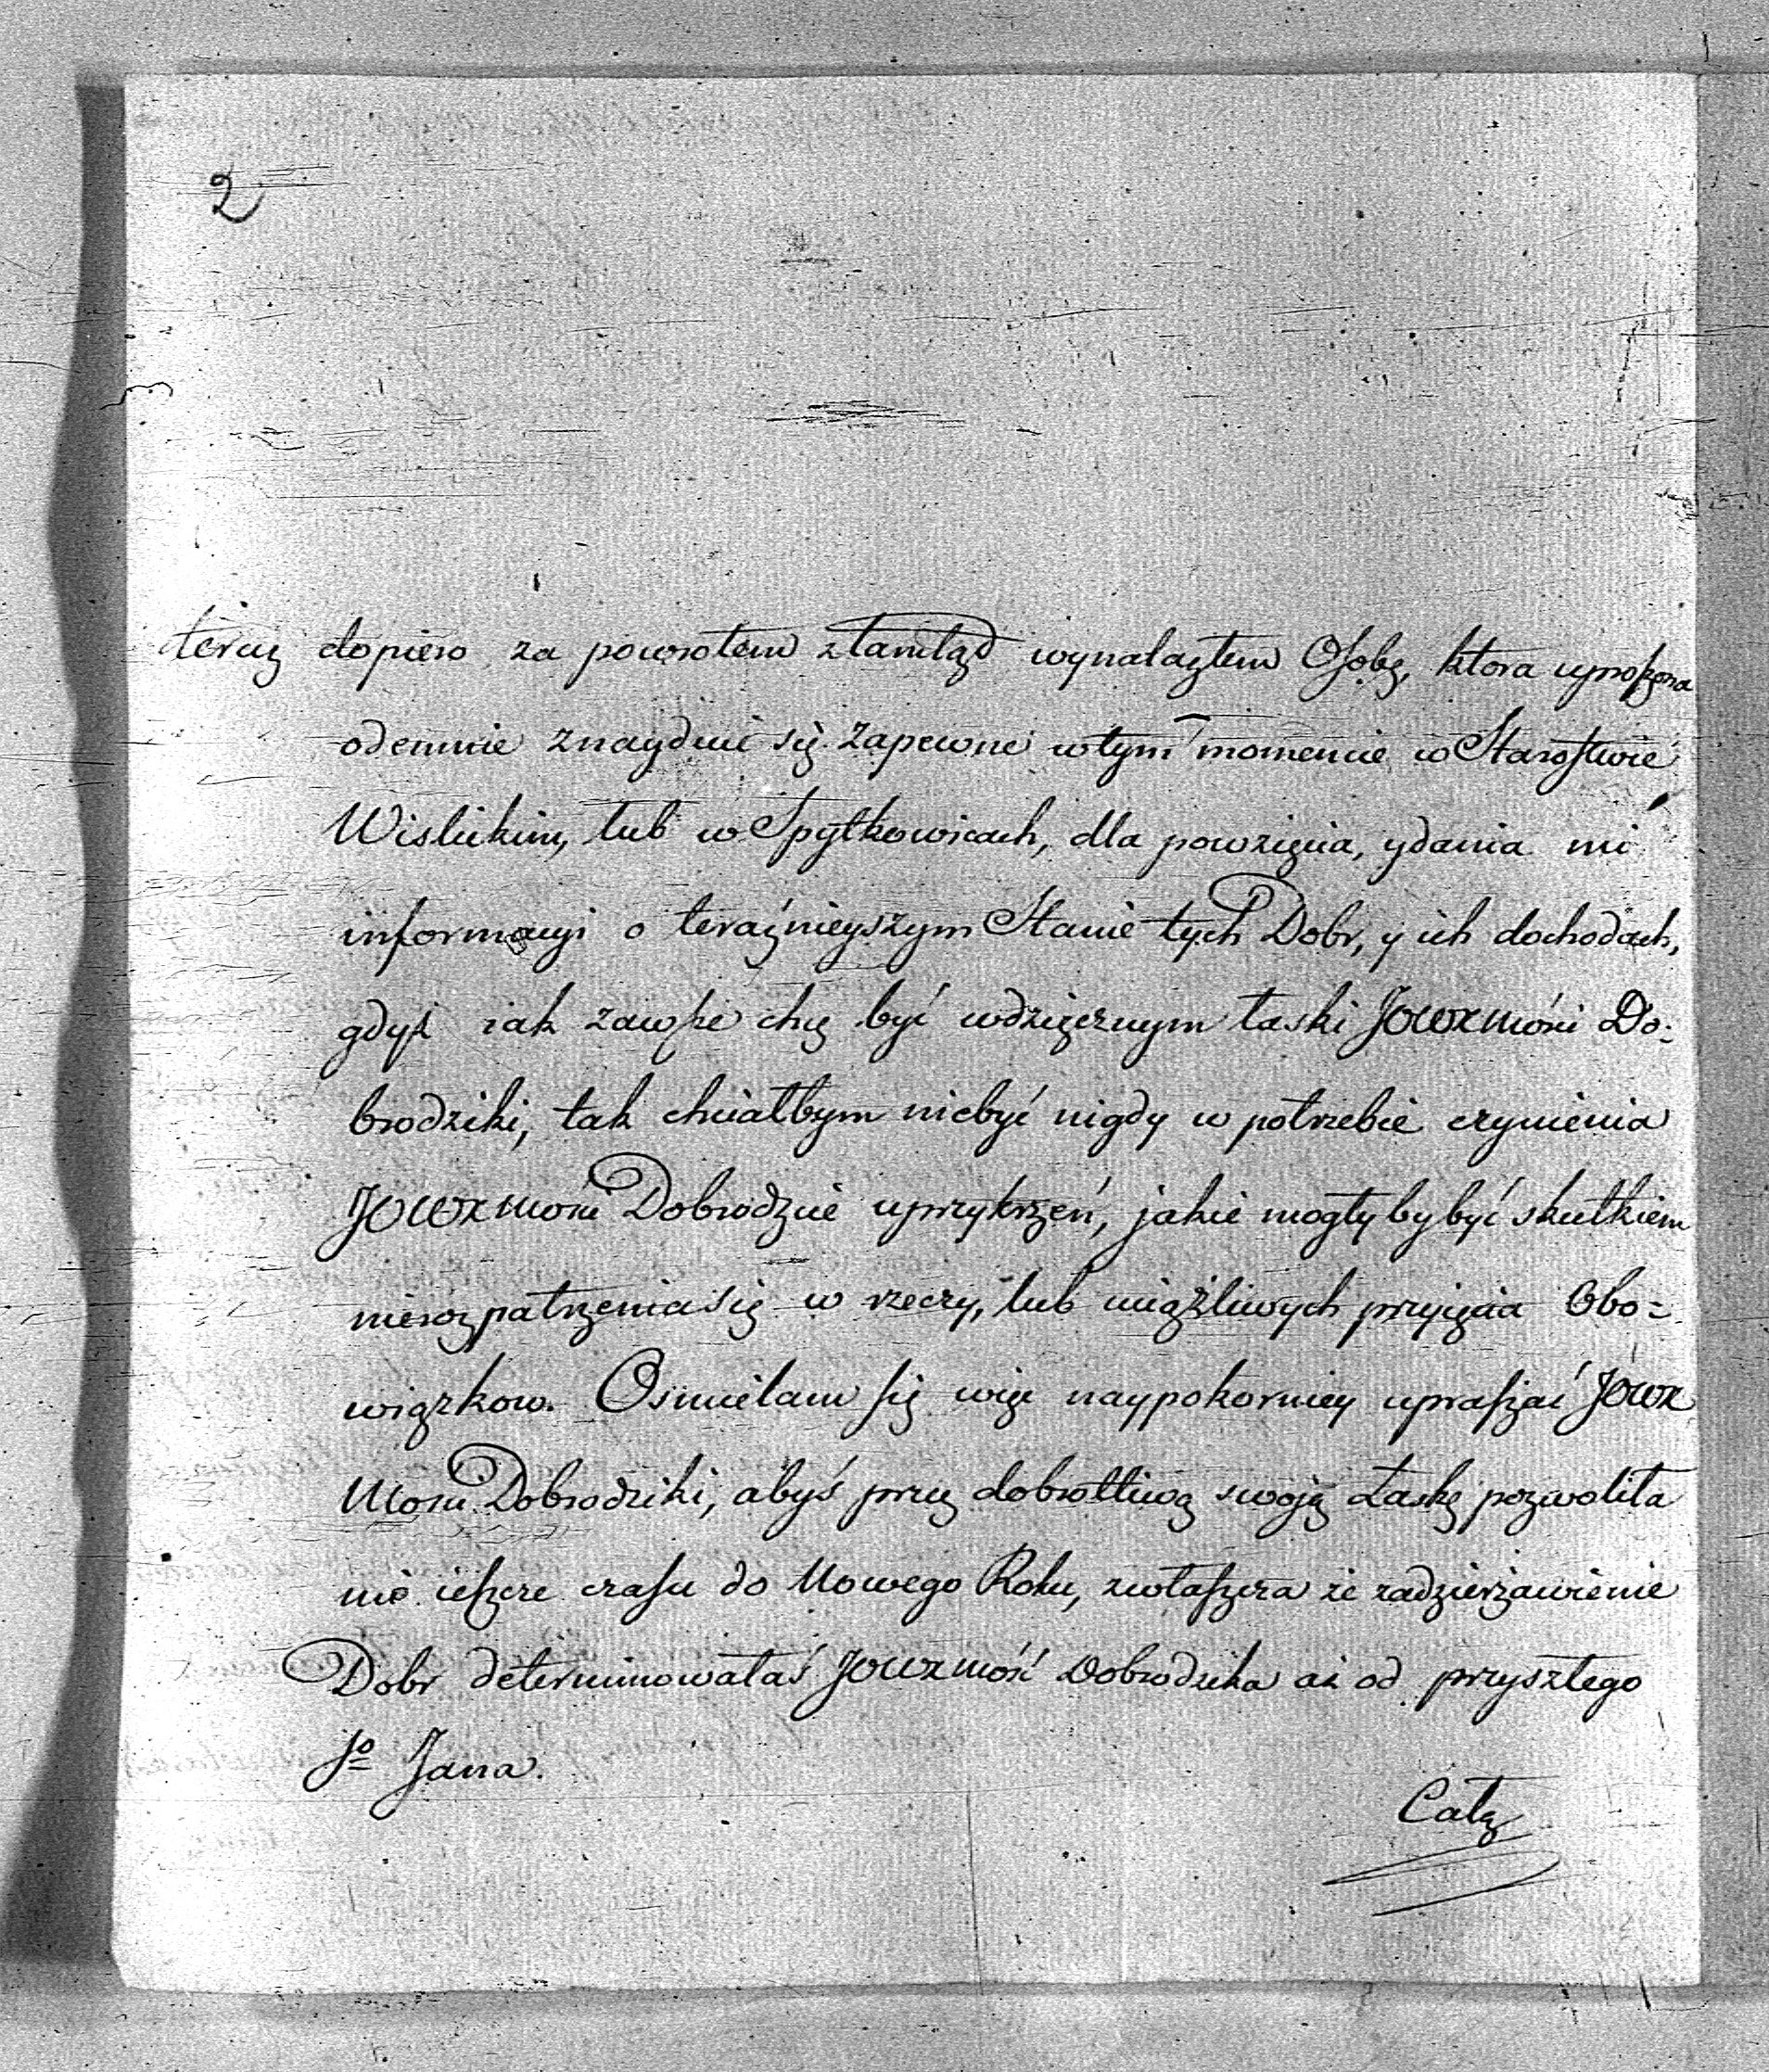 2
teraz dopiero za powrotem ztamtąd wynalazłem Osobę, ktora uproszona
odemnie znayduie się zapewne w tym momencie w Starostwie
Wislickim, lub w Spytkowicach, dla powzięcia, y dania mi
informacyi o teraźnieyszym Stanie tych Dobr, y ich dochodach,
gdyż iak zawsze chcę być wdzięcznym łaski JOWXMości Do:
brodziki, tak chciałbym niebyć nigdy w potrzebie czynienia
JOWXMości Dobrodzice uprzykrzeń, jakie mogłyby być skutkiem
nierozpatrzenia się w rzeczy, lub uciążliwych przyięcia Obo=
wiązkow. Osmielam się więc naypokorniey upraszać JOWX
Mości Dobrodziki, abyś przez dobrotliwą swoją Łaskę pozwoliła
mi ieszcze czasu do Nowego Roku, zwłaszcza że zadzierżawienie
Dobr determinowałaś JOWXMość Dobrodzika aż od przyszłego
So Jana.
Całą